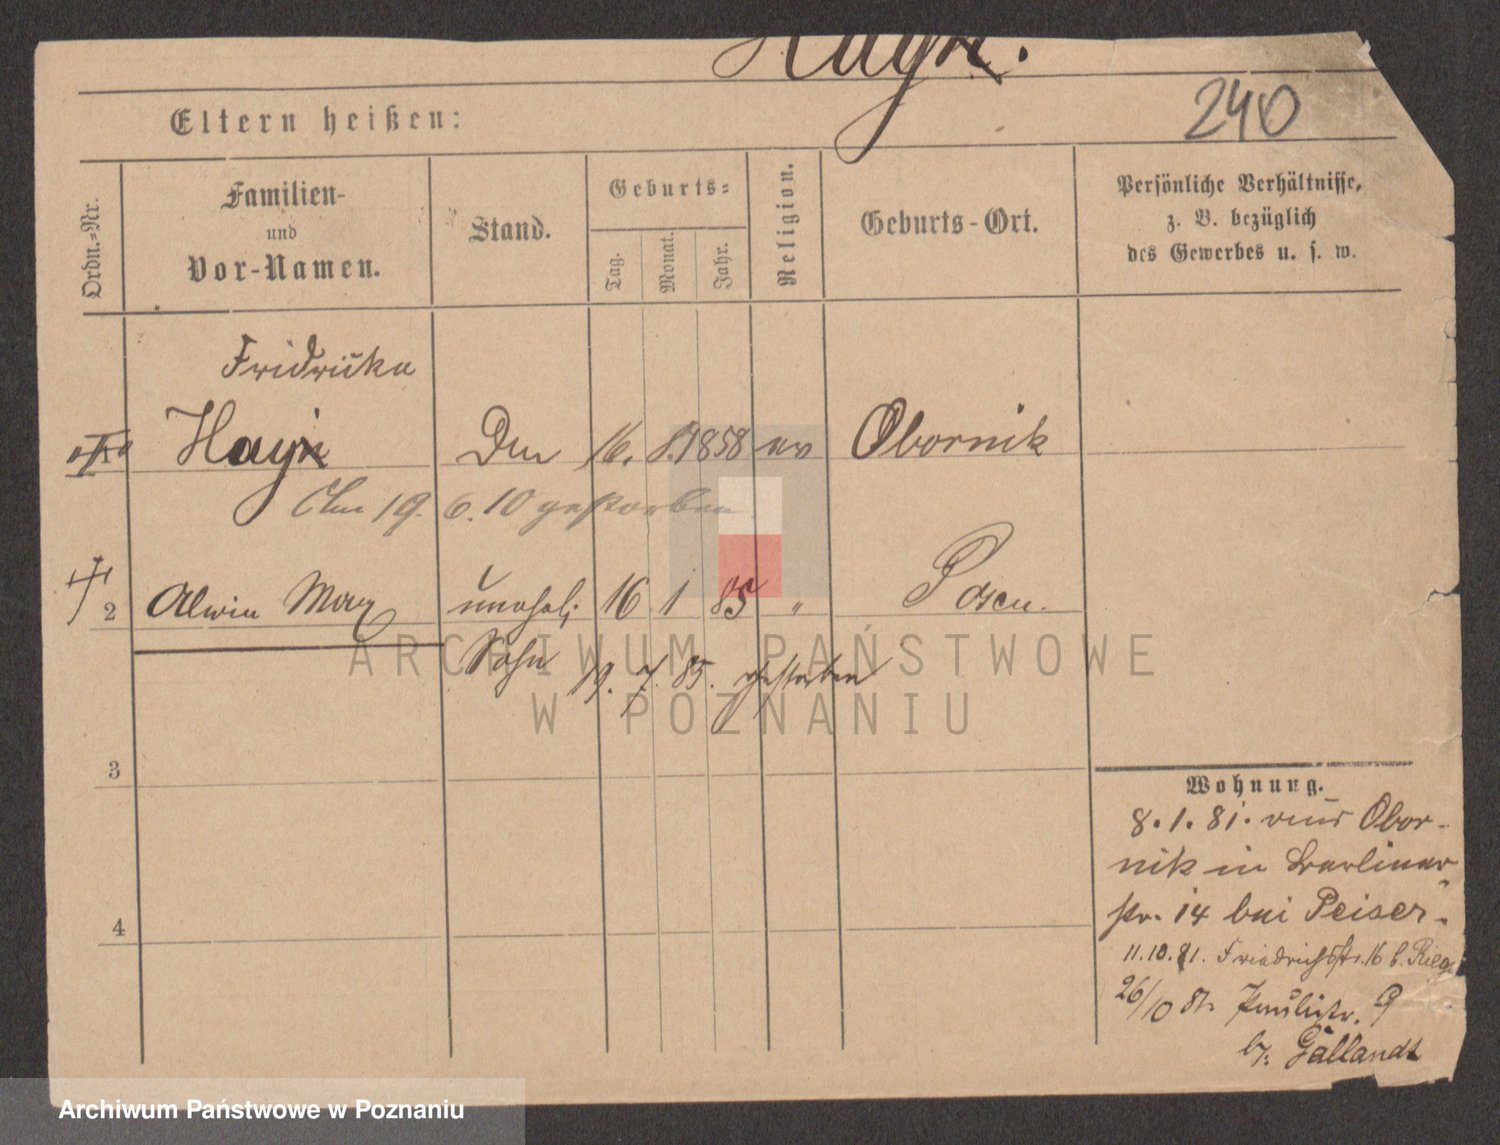 Hayn.
240
Eltern heißen:
Ordn.-Nr.
Familien-
und
Vor-Namen.
Stand.
Geburts-
Tag.
Monat.
Jahr.
Religion.
Geburts-Ort.
Persönliche Verhältnisse,
z. B. bezüglich
des Gewerbes u. s. w.
Fridrika
Hayn 16. 8. 1858 ev Obornik
Am 19. 6. 10 gestorben
2 Alwin Max unehel: 16 1 85 " Posen.
Sohn 19. 7. 85. gestorben
3
4
Wohnung.
8.1.81. aus Obor-
nik in Berliner-
str. 14 bei Peiser.
11.10.81. Friedrichstr. 16 b.
26/10 Paulistr. 9
b: Gallandt
ARCHIWUM PAŃSTWOWE
W POZNANIU
Archiwum Państwowe w Poznaniu